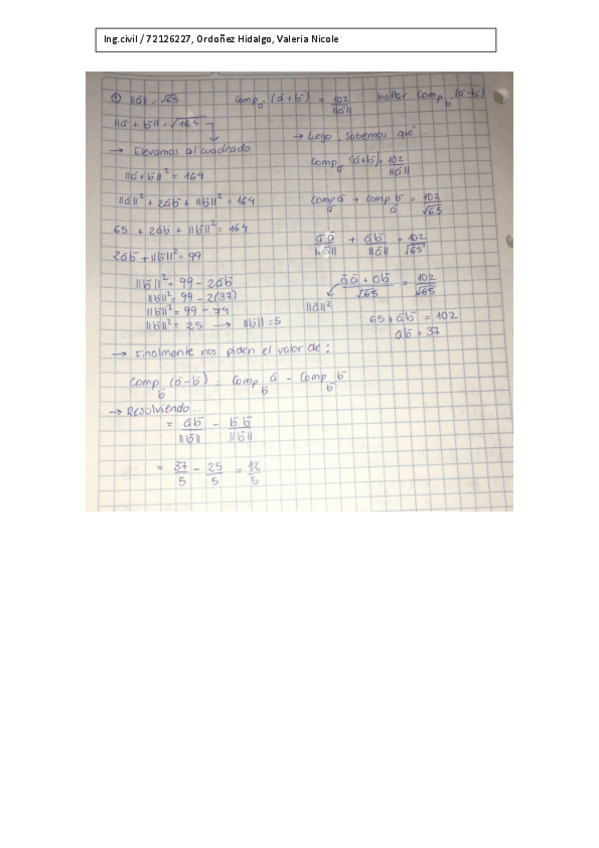 Ing.civil / 72126227, Ordoñez Hidalgo, Valeria Nicole
① ||ā|| = √65    Comp_ā (ā+b̄) = 102/||ā||    hallar Comp_b̄ (ā-b̄)
||ā + b̄|| = √164
→ Elevamos al cuadrado
||ā + b̄||² = 164
||ā||² + 2āb̄ + ||b̄||² = 164
65 + 2āb̄ + ||b̄||² = 164
2āb̄ + ||b̄||² = 99
||b̄||² = 99 - 2āb̄
||b̄||² = 99 - 2(37)
||b̄||² = 99 - 74
||b̄||² = 25 → ||b̄|| = 5
→ Luego, sabemos que...
Comp_ā (ā+b̄) = 102/||ā||
Comp_ā ā + Comp_ā b̄ = 102/√65
āā/||ā|| + āb̄/||ā|| = 102/√65
(āā + āb̄)/√65 = 102/√65
||ā||²
65 + āb̄ = 102
āb̄ = 37
→ Finalmente nos piden el valor de:
Comp_b̄ (ā-b̄) = Comp_b̄ ā - Comp_b̄ b̄
→ Resolviendo...
= āb̄/||b̄|| - b̄b̄/||b̄||
= 37/5 - 25/5 = 12/5